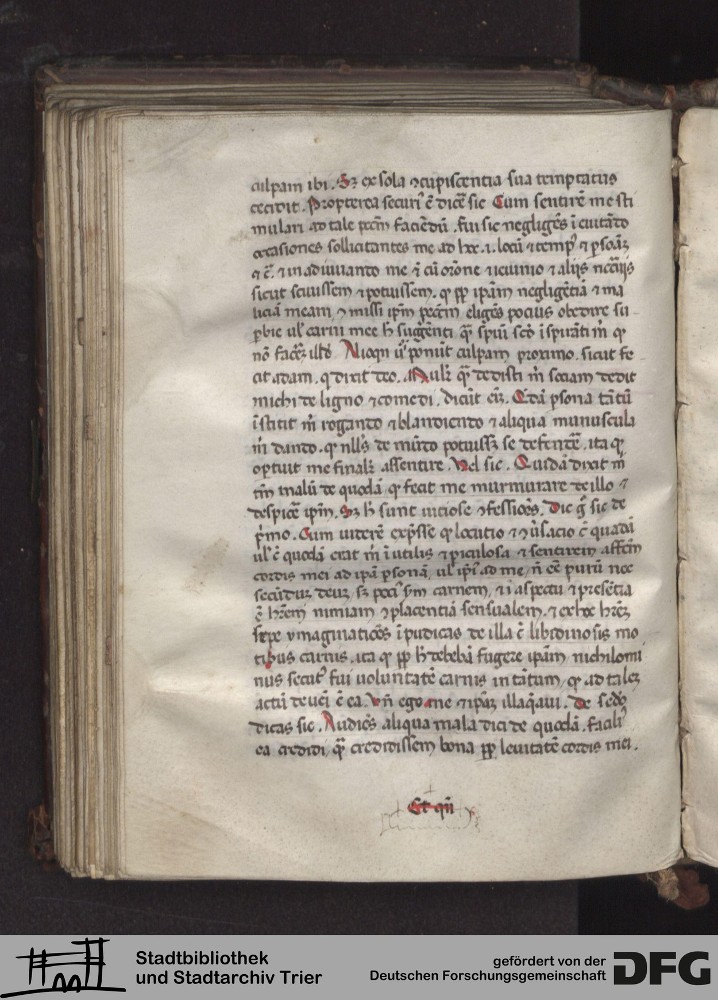 culpam ibi. Sꝫ ex sola ꝯcupiscentia sua temptatus
cecidit. Propterea securiꝰ ē dicē sic Cum sentirē me sti
mulari ad tale pctm̄ faciēdū. fui sic negligēs ī euitādo
occasiones sollicitantes me ad hoc .i. locū ⁊ tempꝰ ⁊
⁊ in adiuuando me ī cū orōne ieiunio ⁊ alijs nccārijs
sicut sciuissem ⁊ potuissem. qꝫ ꝓp ip̄am negligētiā ⁊ ma
liciā meam, ⁊ missi ip̄m pctm̄ eligēs pocius obedire su
ꝑbie ul̓ carni mee h̓ suggēnti qꝫ spiritui scō īspirāti m̄ qꝫ
nō illd̓ Alioqn̄ ponūt culpam proximo. sicut fe
cit adam. q dixit deo. Mulr̄ qꝫ dedisti m̄ sociam dedit
michi de ligno ⁊ comedi. dicūt em̄. Qdā ꝑsona tātū
īstitit m̄ rogando ⁊ blandiendo ⁊ aliqua munuscula
m̄ dando. qꝫ nlls de mūdo potuissꝫ se defendē. ita qꝫ
oportuit me finalr̄ assentire. Vel sic. Quidā dixit m̄
tm̄ malū de quodā, qꝫ fecit me murmurare de illo ⁊
despicē ip̄m. Sꝫ h̓ sunt viciose ꝯfessiōes. Dic gͦ sic de
pͥmo. Cum viderē exp̄sse qꝫ locutio ⁊ ꝯūsacio c̄ quadā
ul̓ c̄ quodā erat m̄ īutilis ⁊ ꝑiculosa ⁊ sentirem affcm̄
cordis mei ad ip̄ā ꝑsonā, ul̓ ip̄iꝰ ad me, n̄ eē purū nec
secūdum deum, sꝫ pociꝰ sm̄ carnem, ⁊ ī aspectu ⁊ presētia
eiꝰ hr̄em nimiam ꝯplacentiā sensualem. ⁊ ex hoc hr̄eꝫ
sepe ymaginatiōes īpudicas de illa c̄ libidinosis mo
tibus carnis. ita qꝫ ꝓp h̓ debebā fugere ip̄am nichilomi
nus secutꝰ fui voluntatē carnis in tātum, qꝫ ad taleꝫ
actū deueni c̄ ea. Vn̄ ego me ⁊ ip̄aꝫ illaq̄aui. De sc̄do
dicas sic. Audiēs aliqua mala dici de quodā. faciliꝰ
ea credidi, qꝫ credidissem bona ꝓp leuitatē cordis mei.
Et qn̄
Stadtbibliothek
und Stadtarchiv Trier
gefördert von der
Deutschen Forschungsgemeinschaft
DFG